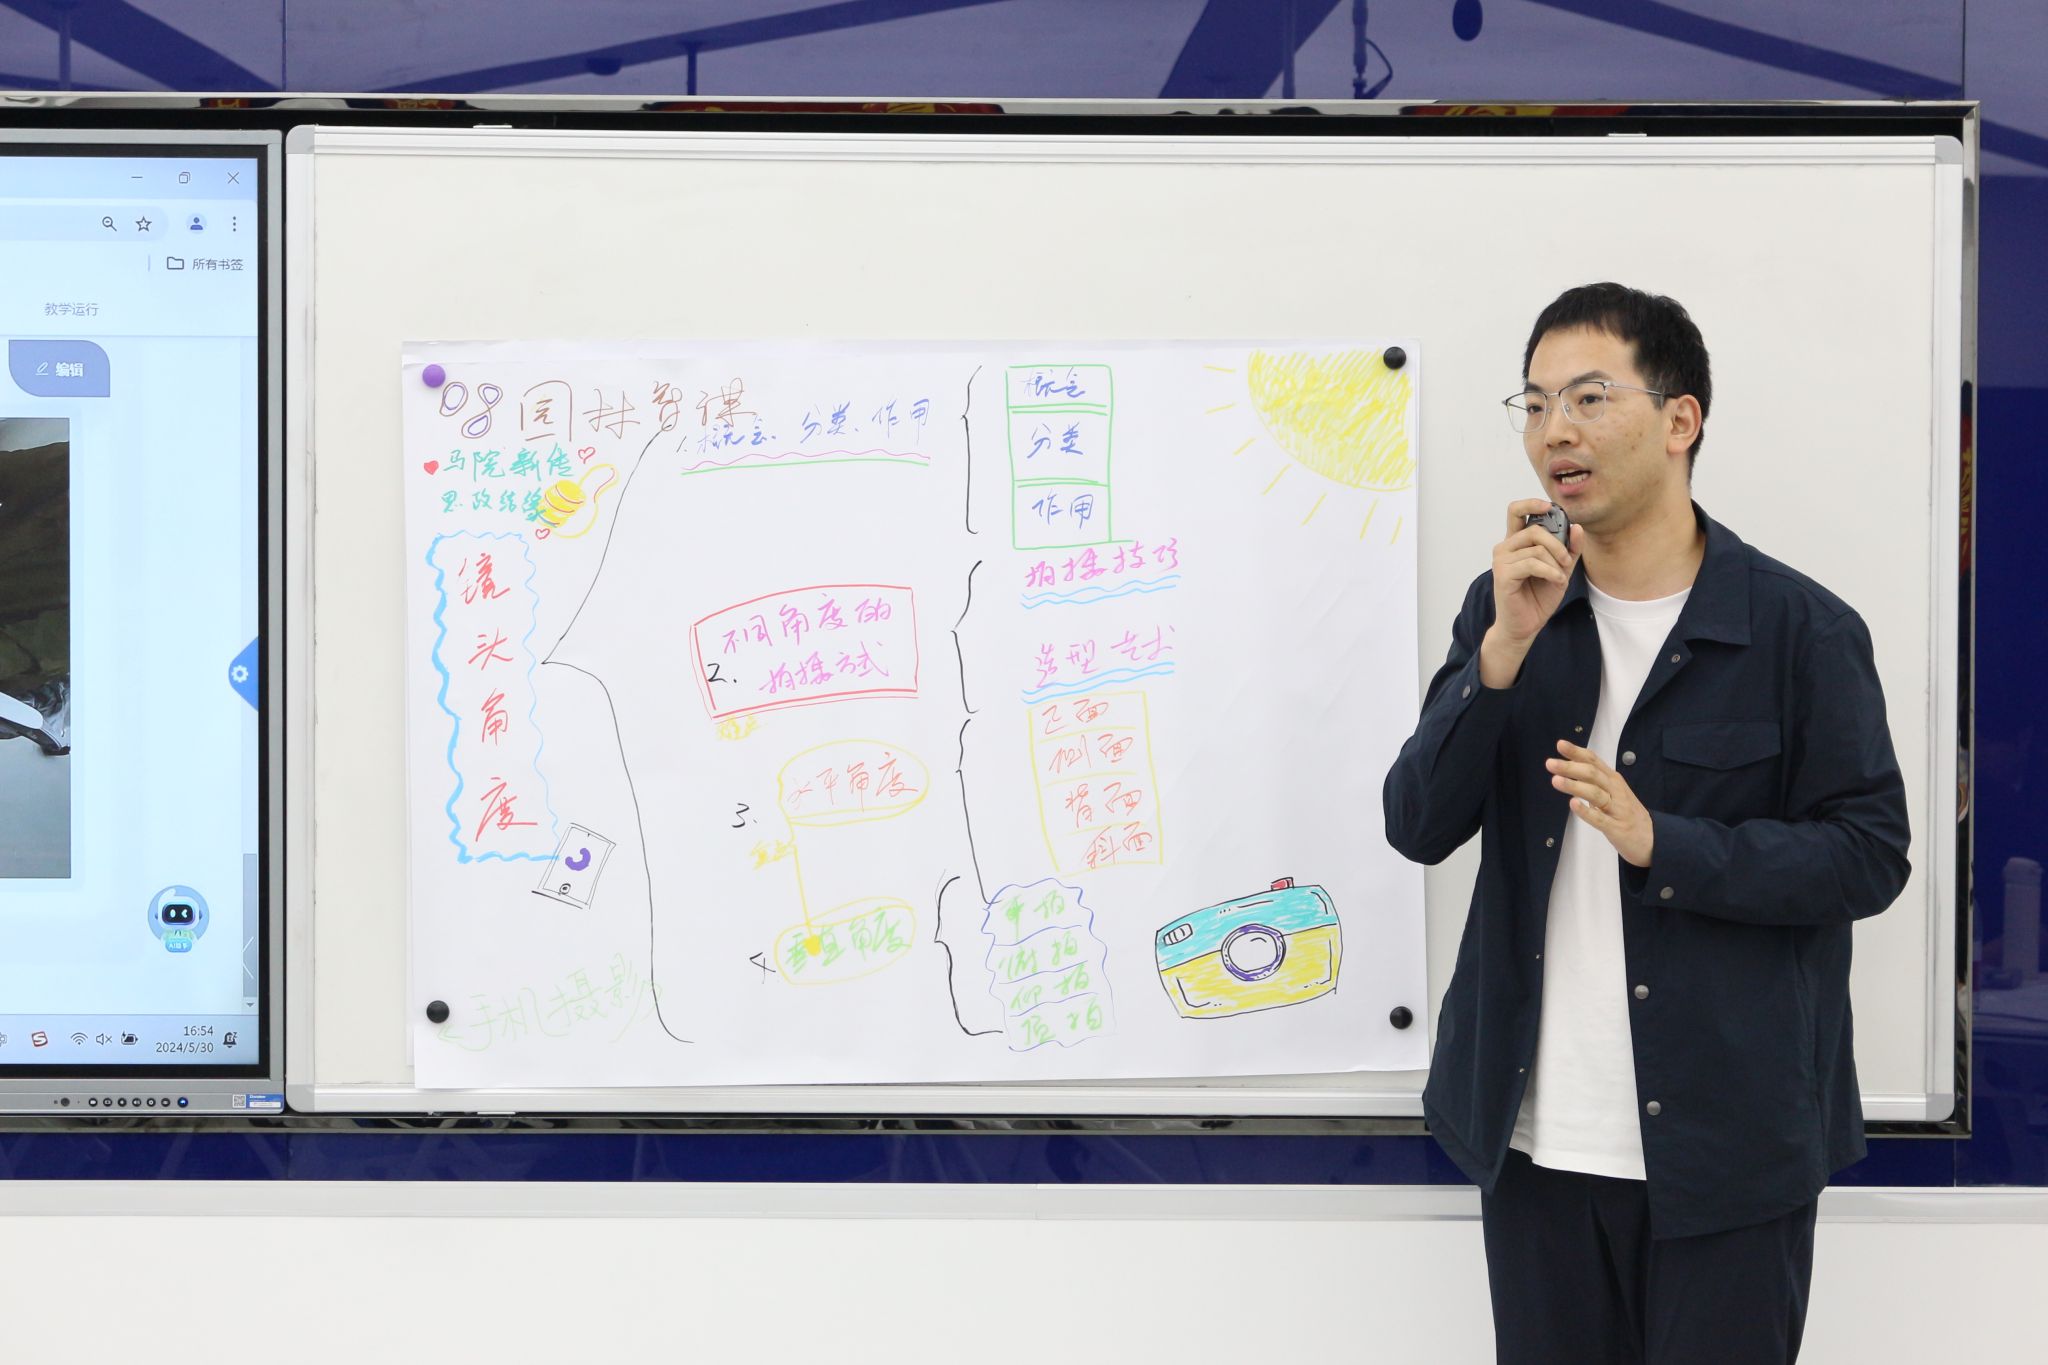 所有书签
教学运行
编辑
AI助手
16:54
2024/5/30
08 园林智课
马院新传
思政结缘
镜头角度
《手机摄影》
1. 概念、分类、作用
概念
分类
作用
2. 不同角度的
拍摄方式
难点
拍摄技巧
造型艺术
3. 水平角度
重点
正面
侧面
背面
斜面
4. 垂直角度
平拍
俯拍
仰拍
顶拍